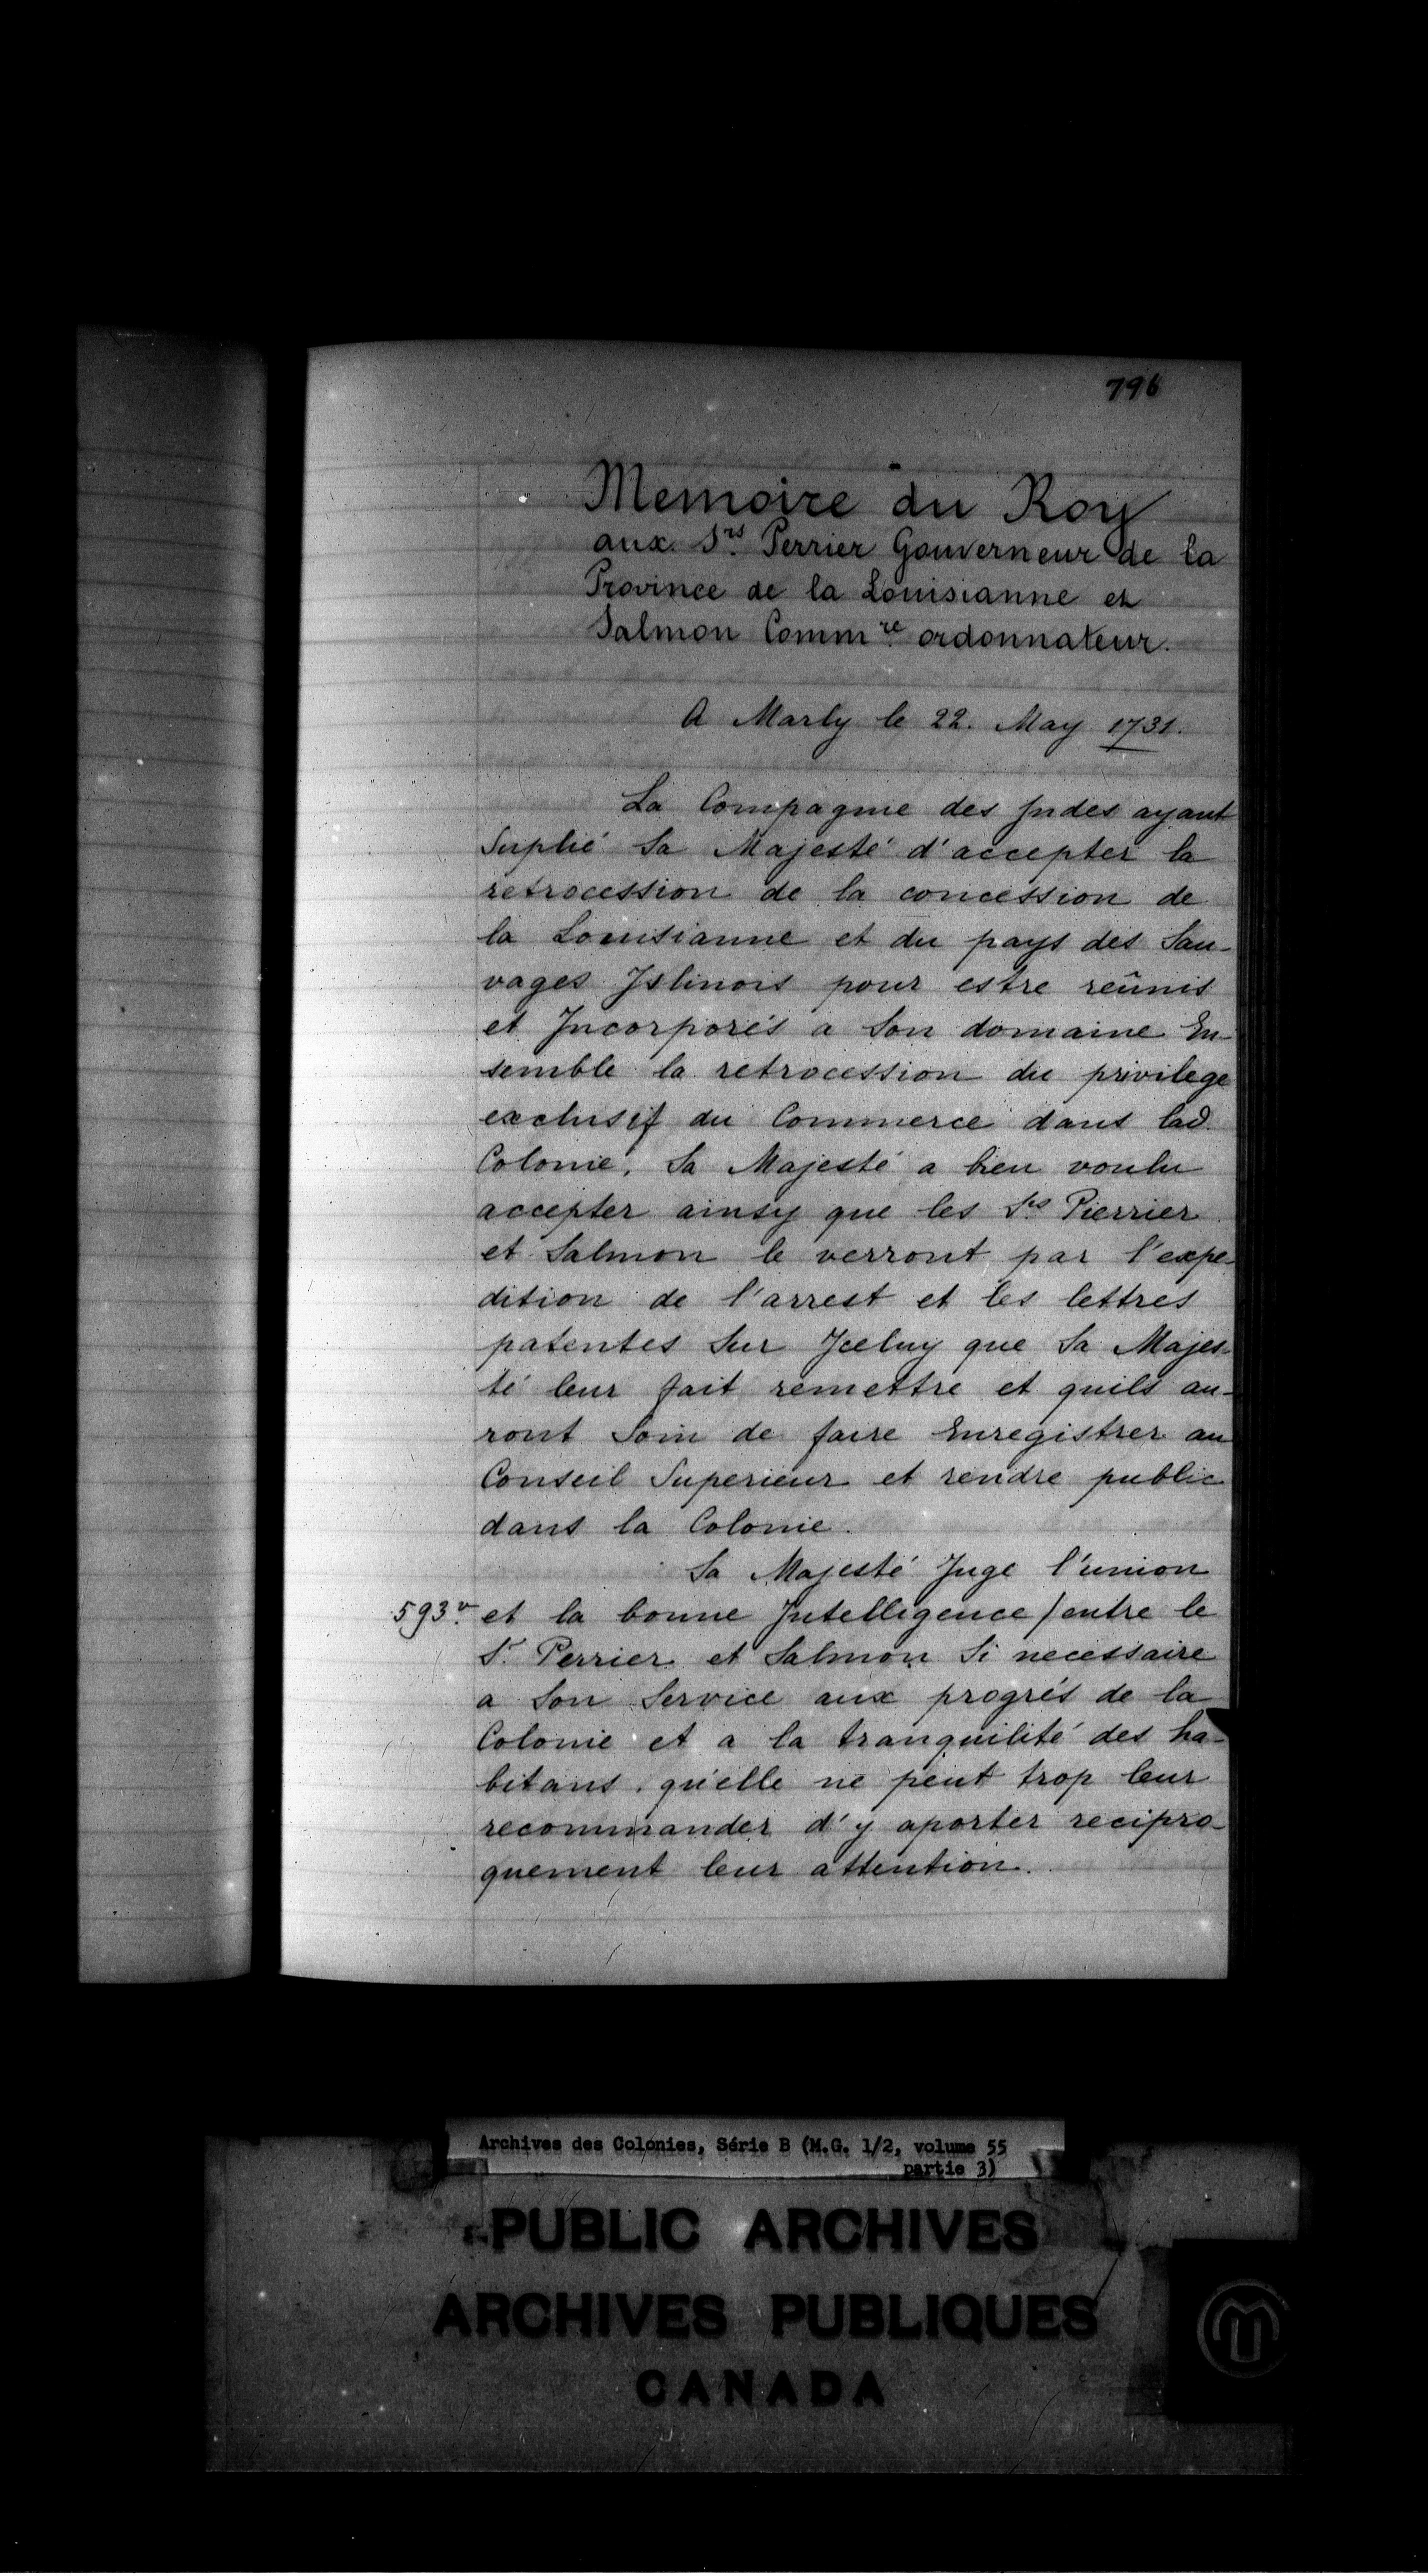 796
Memoire du Roy
aux Srs Perrier Gouverneur de la
Province de la Louisianne et
Salmon Commre ordonnateur.
A Marly le 22. May 1731.
La Compagnie des Indes ayant
Suplié Sa Majesté d'accepter la
retrocession de la concession de
la Louisianne et du pays des Sau-
vages Islinois pour estre reûnis
et Incorporés a Son domaine En-
semble la retrocession du privilege
exclusif du Commerce dans lad.
Colonie, Sa Majesté a bien voulu
accepter ainsy que les Srs Pierrier
et Salmon le verront par l'expe-
dition de l'arrest et les lettres
patentes Sur Iceluy que Sa Majes-
té leur fait remettre et quils au-
ront Soin de faire Enregistrer au
Conseil Superieur et rendre public
dans la Colonie.
Sa Majesté Juge l'union
593v. et la bonne Intelligence / entre le
Sr. Perrier et Salmon Si necessaire
a Son Service aux progrés de la
Colonie et a la tranquilité des ha-
bitans qu'elle ne peut trop leur
recommander d'y aporter recipro-
quement leur attention.
Archives des Colonies, Série B (M.G. 1/2, volume 55
partie 3)
PUBLIC ARCHIVES
ARCHIVES PUBLIQUES
CANADA